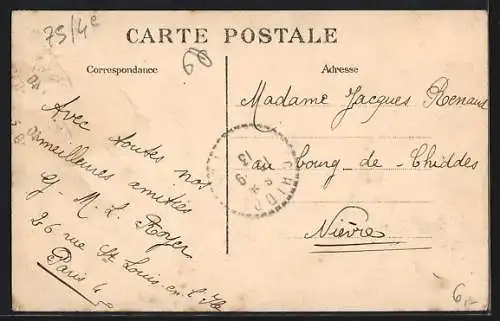 75/4e
60
CARTE POSTALE
Correspondance
Adresse
Avec toutes nos
meilleures amitiés
G. M. L. Royer
26 rue St Louis-en-l'Ile
Paris 4e
Madame Jacques Renaud
au bourg-de-Chiddes
Nièvre
CHID
6,-